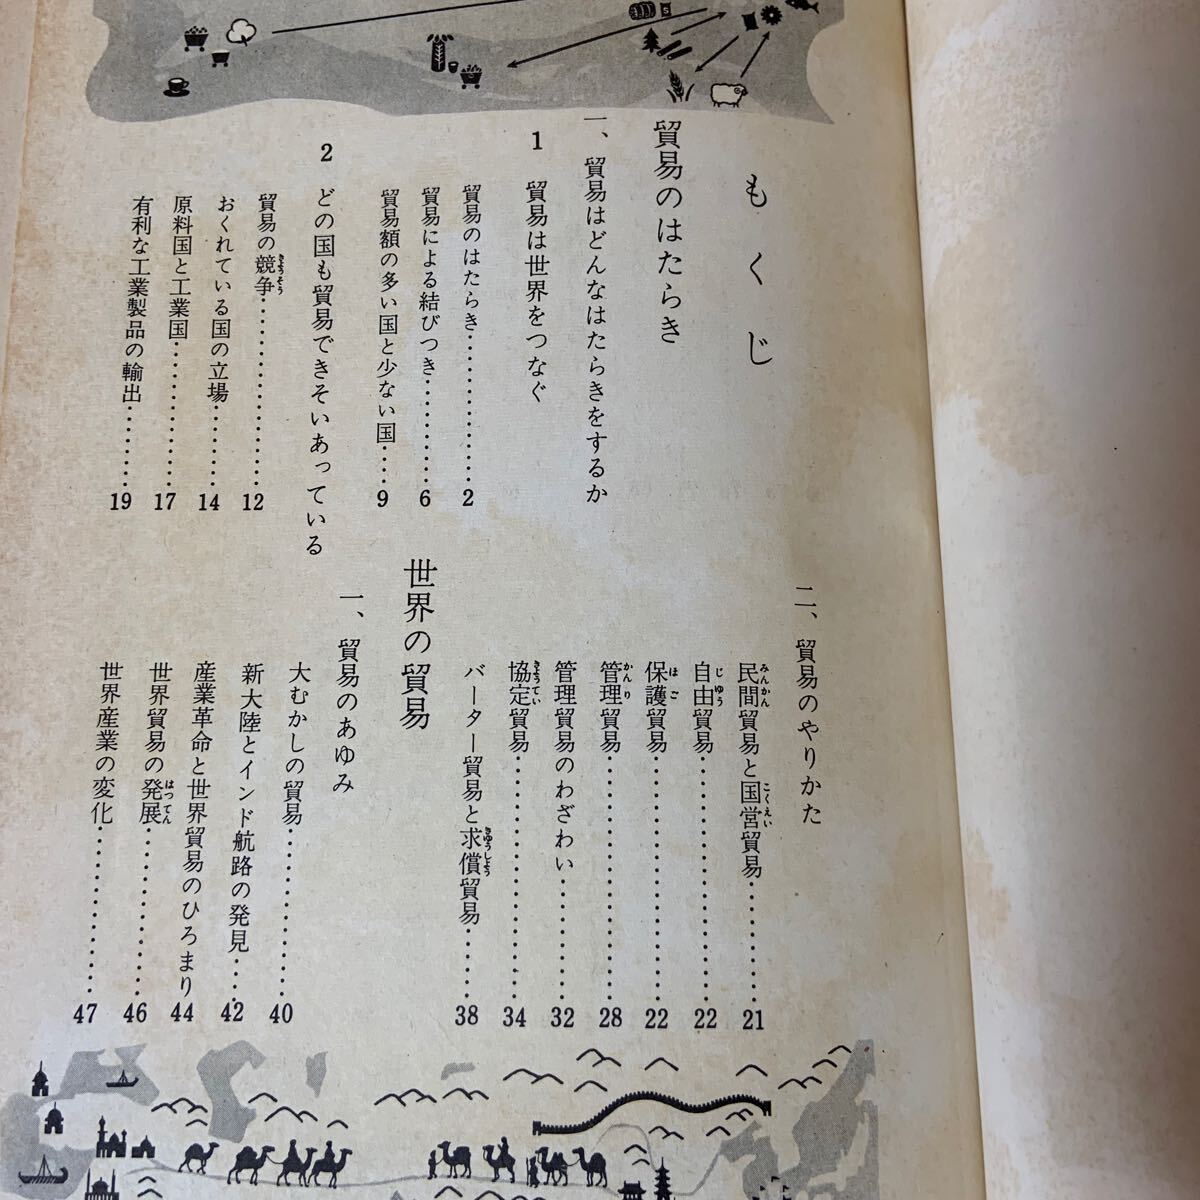 もくじ
貿易のはたらき
一、貿易はどんなはたらきをするか
1 貿易は世界をつなぐ
貿易のはたらき…………2
貿易による結びつき…………6
貿易額の多い国と少ない国…9
2 どの国も貿易できそいあっている
貿易の競争きょうそう…………12
おくれている国の立場…………14
原料国と工業国…………17
有利な工業製品の輸出…………19
二、貿易のやりかた
民間みんかん貿易と国営こくえい貿易…………21
自由じゆう貿易…………22
保護ほご貿易…………22
管理かんり貿易…………28
管理貿易のわざわい…………32
協定きょうてい貿易…………34
バーター貿易と求償きゅうしょう貿易…………38
世界の貿易
一、貿易のあゆみ
大むかしの貿易…………40
新大陸とインド航路の発見…42
産業革命と世界貿易のひろまり 44
世界貿易の発展はってん…………46
世界産業の変化…………47